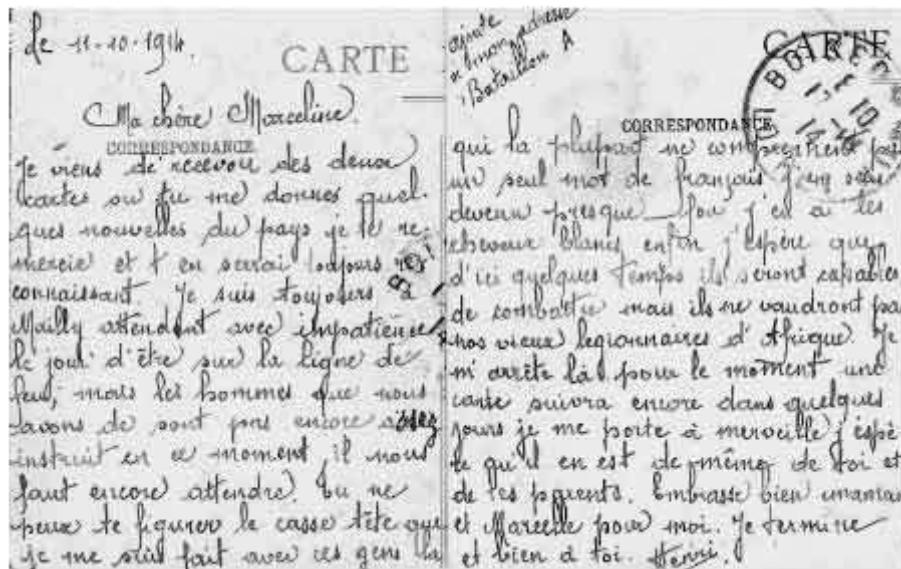 le 11-10-1914.
CARTE
Ma chère Marceline.
CORRESPONDANCE
Je viens de recevoir des deux
cartes ou tu me donnes quel-
ques nouvelles du pays je te re-
mercie et t en serrai toujours re
connaissant. Je suis toujours à
Mailly attendent avec impatience
le jour d'être sur la ligne de
feu, mais les hommes que nous
avons de sont pas encore assez
instruit en ce moment il nous
faut encore attendre. Tu ne
peux te figurer le casse tête que
je me suis fait avec ces gens la
ajoute
a mon adresse
Bataillon A
CARTE
CORRESPONDANCE
qui la plupart ne comprennent pas
un seul mot de français j'en suis
devenu presque fou j'en ai les
cheveux blancs enfin j'espère que
d'ici quelques temps ils seront capables
de combattre mais ils ne vaudront pas
nos vieux legionnaires d'Afrique. Je
m'arrête là pour le moment une
carte suivra encore dans quelques
jours je me porte à merveille j'espè
re qu'il en est de même de toi et
de tes parents. Embrasse bien maman
et Marcelle pour moi. Je termine
et bien à toi. Henri.